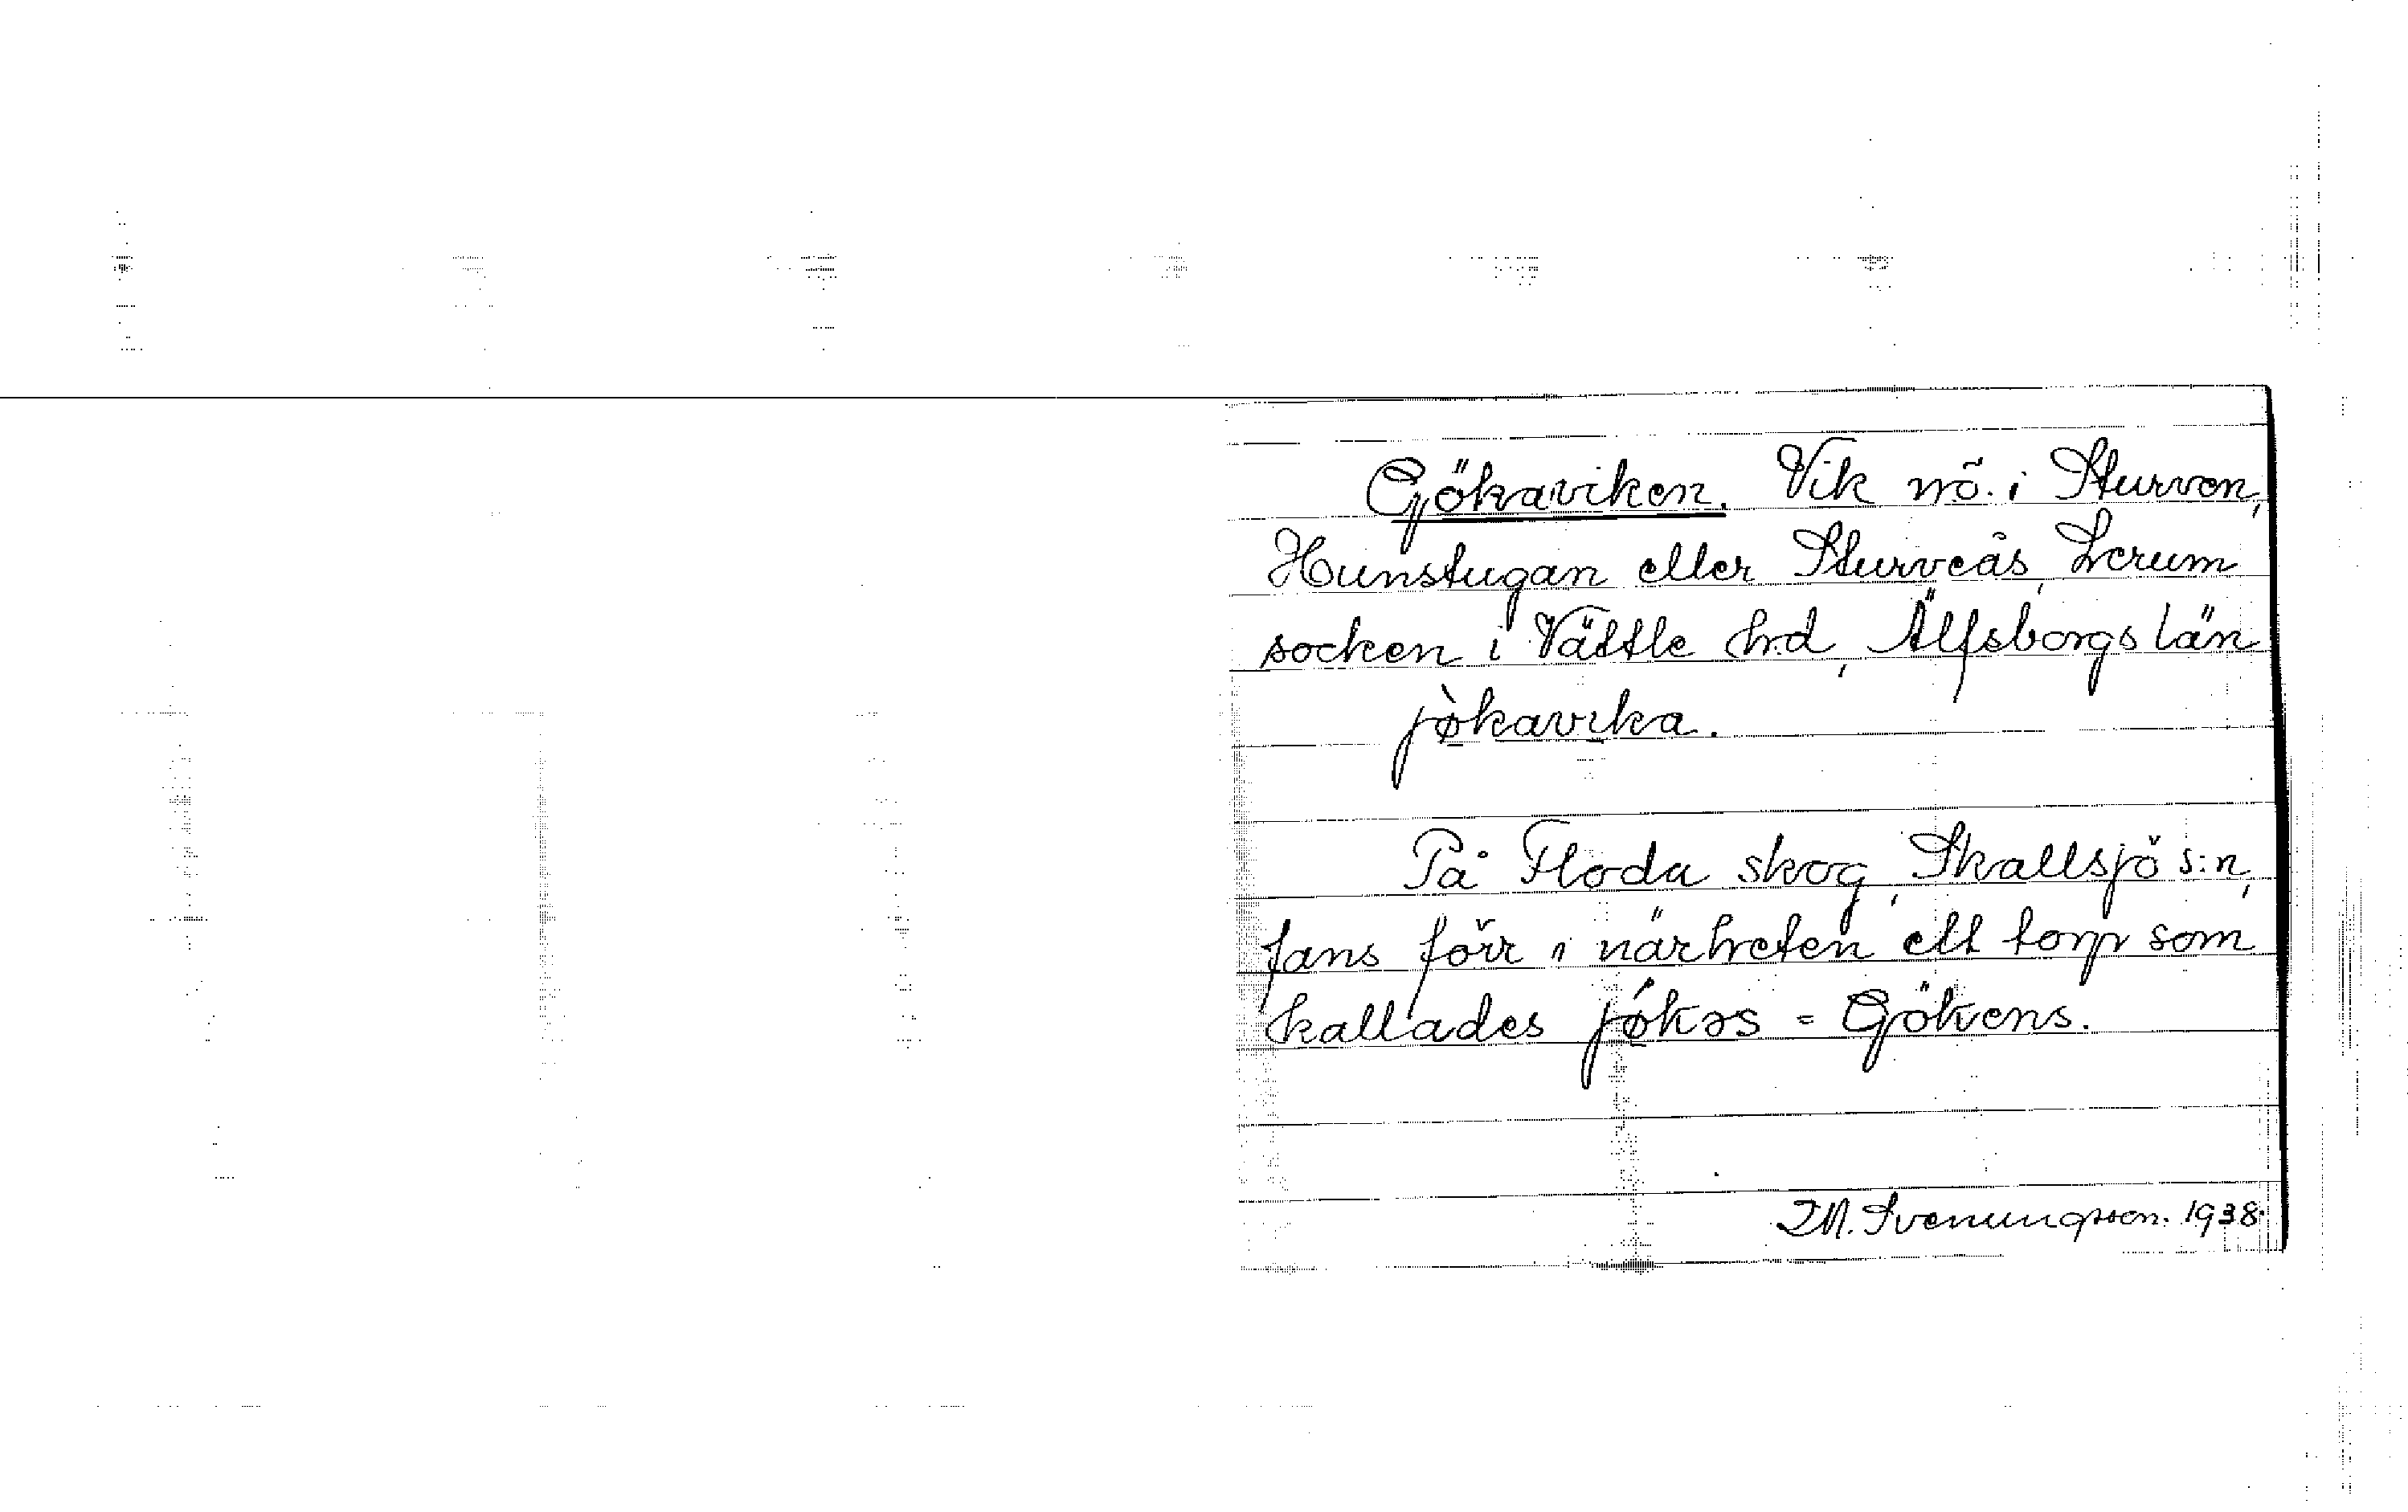 Gjökaviken. Vik nö. i Sturven,
Hunstugan eller Sturveås, Lerum
socken i Vättle hrd, Älfsborgs län
jø̀kavika.
På Floda skog, Skallsjö s:n,
fans förr i närheten ett torp som
kallades jǿkəs = Gökens.
I.M. Svenungsson. 1938.